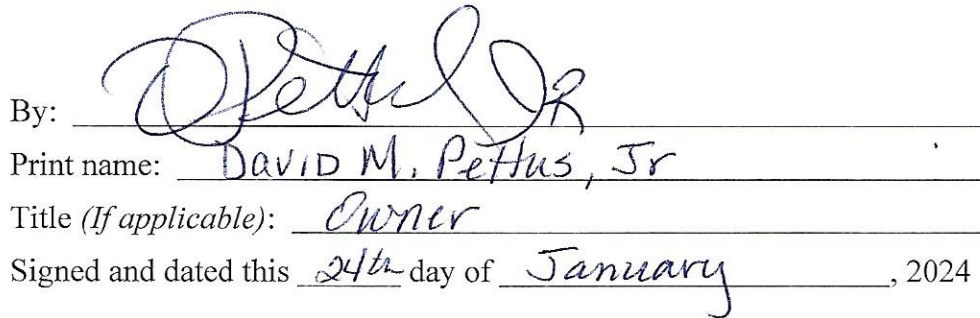 By: DPettus JR
Print name: David M. Pettus, Jr
Title (If applicable): Owner
Signed and dated this 24th day of January, 2024